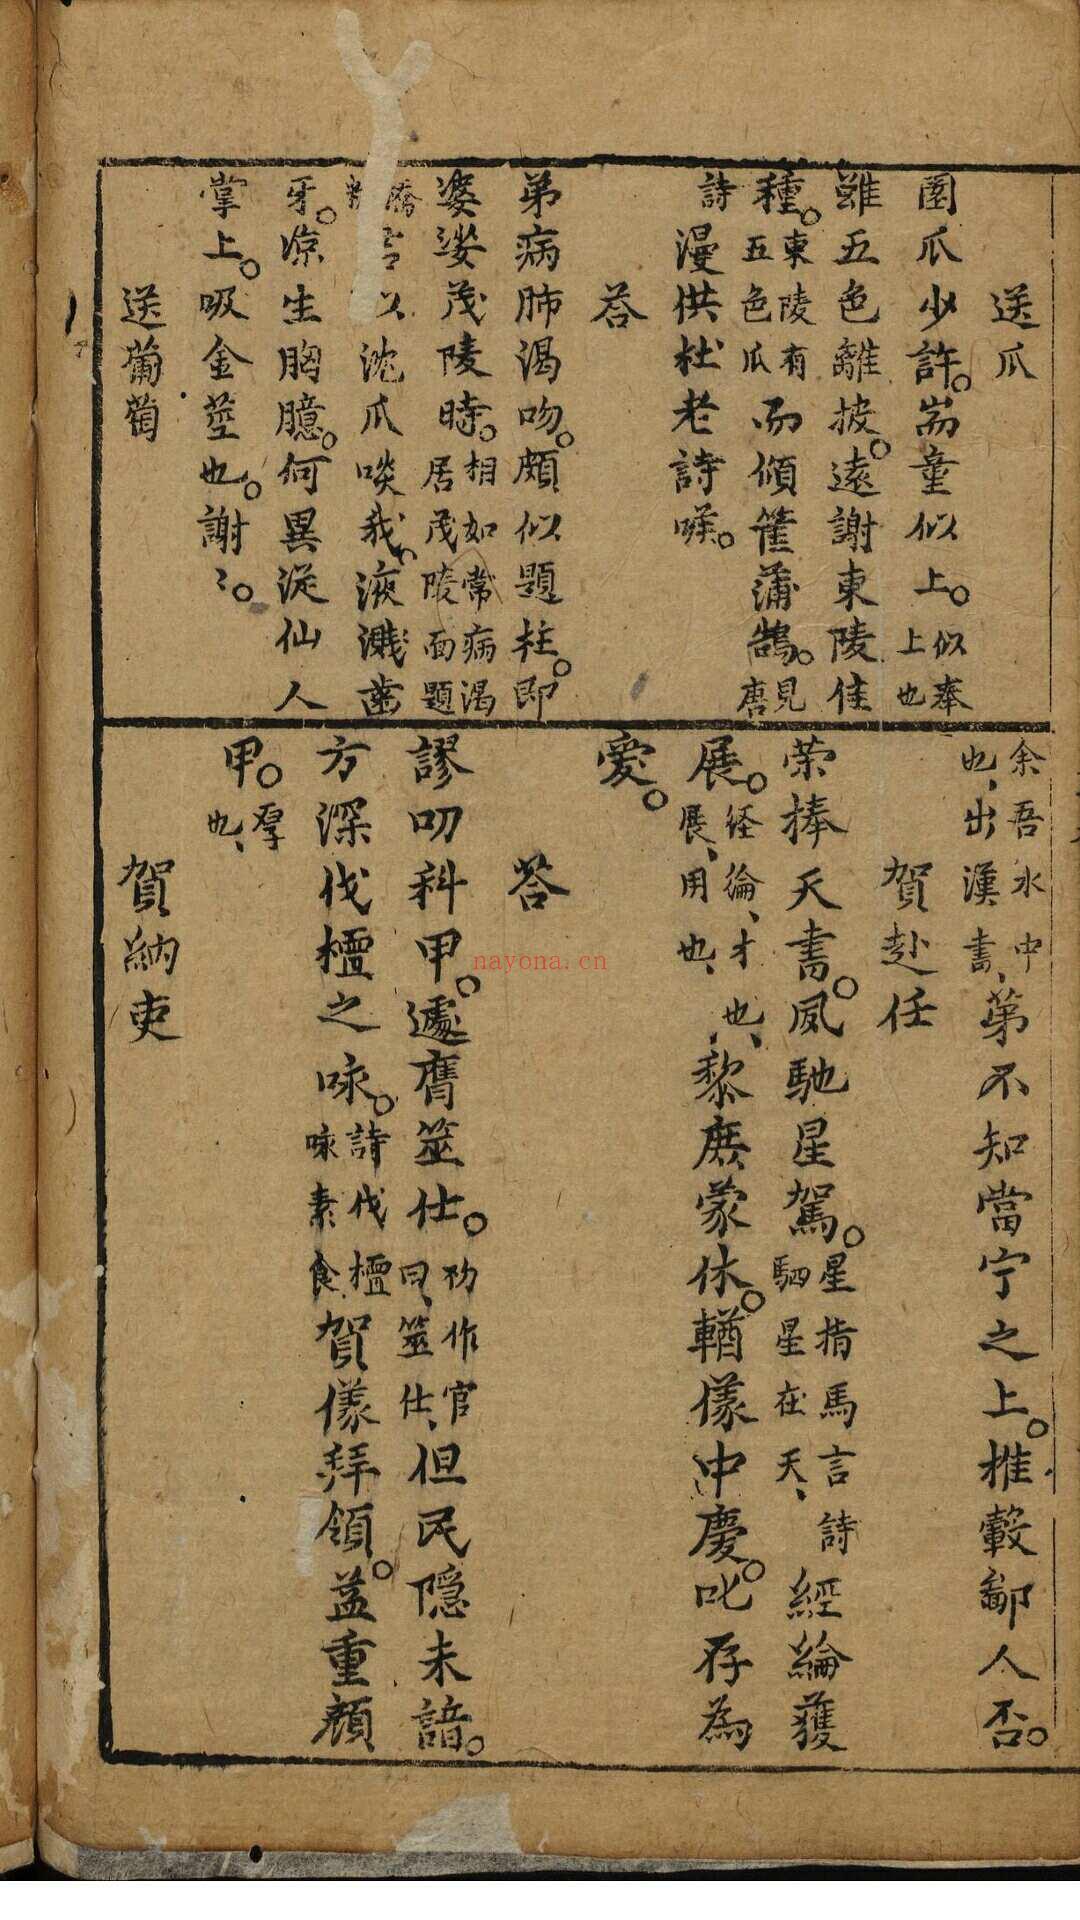 送瓜
園瓜少許。耑童似上。似奉上也
雖五色離披。遠謝東陵佳
種。東陵有五色瓜而傾筐蒲鵠。見唐
詩漫供杜老詩喉。
荅
弟病肺渴吻。頗似題柱。即
婆娑茂陵時。相如常病渴居茂陵面題
以沈瓜啖我、液濺齒
牙。凉生胸臆。何異從仙人
掌上。吸金莖也。謝〻。
送葡萄
余吾水中也、出漢書、第不知當宁之上。推轂鄙人否。
賀赴任
荣捧天書。夙馳星駕。星指馬言詩駟星在天、經綸獲
展。経綸、才也、展、用也、黎庶蒙休。輶儀中慶。叱存為
愛。
荅
謬叨科甲。遽膺筮仕。初作官曰、筮仕、但民隠未諳。
方深伐檀之咏。詩伐檀咏素食賀儀拜領。益重顔
甲。厚也、
賀納吏
nayona.cn